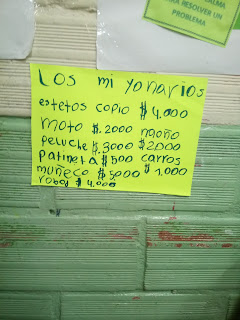 ALMA
PARA RESOLVER UN
PROBLEMA
Los mi yonarios
estetos copio $ 4,000
moto $.2000 moño
peluche $.3000 $2000
patineta $500 carros
muñeco $5000 $1,000
robot $4,000